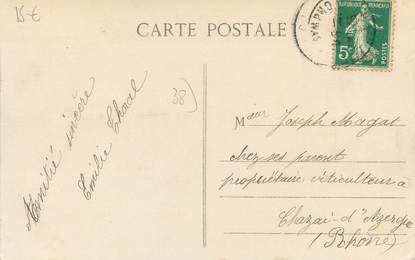 15€
CARTE POSTALE
SYMPHO
REPUBLIQUE FRANÇAISE
5c
POSTES
38)
Amitié sincère
Emilie Chaal
Mœur Joseph Magat
chez ses parent
propriétaire viticulteur à
Chazai-d'Azergue
(Rhône)